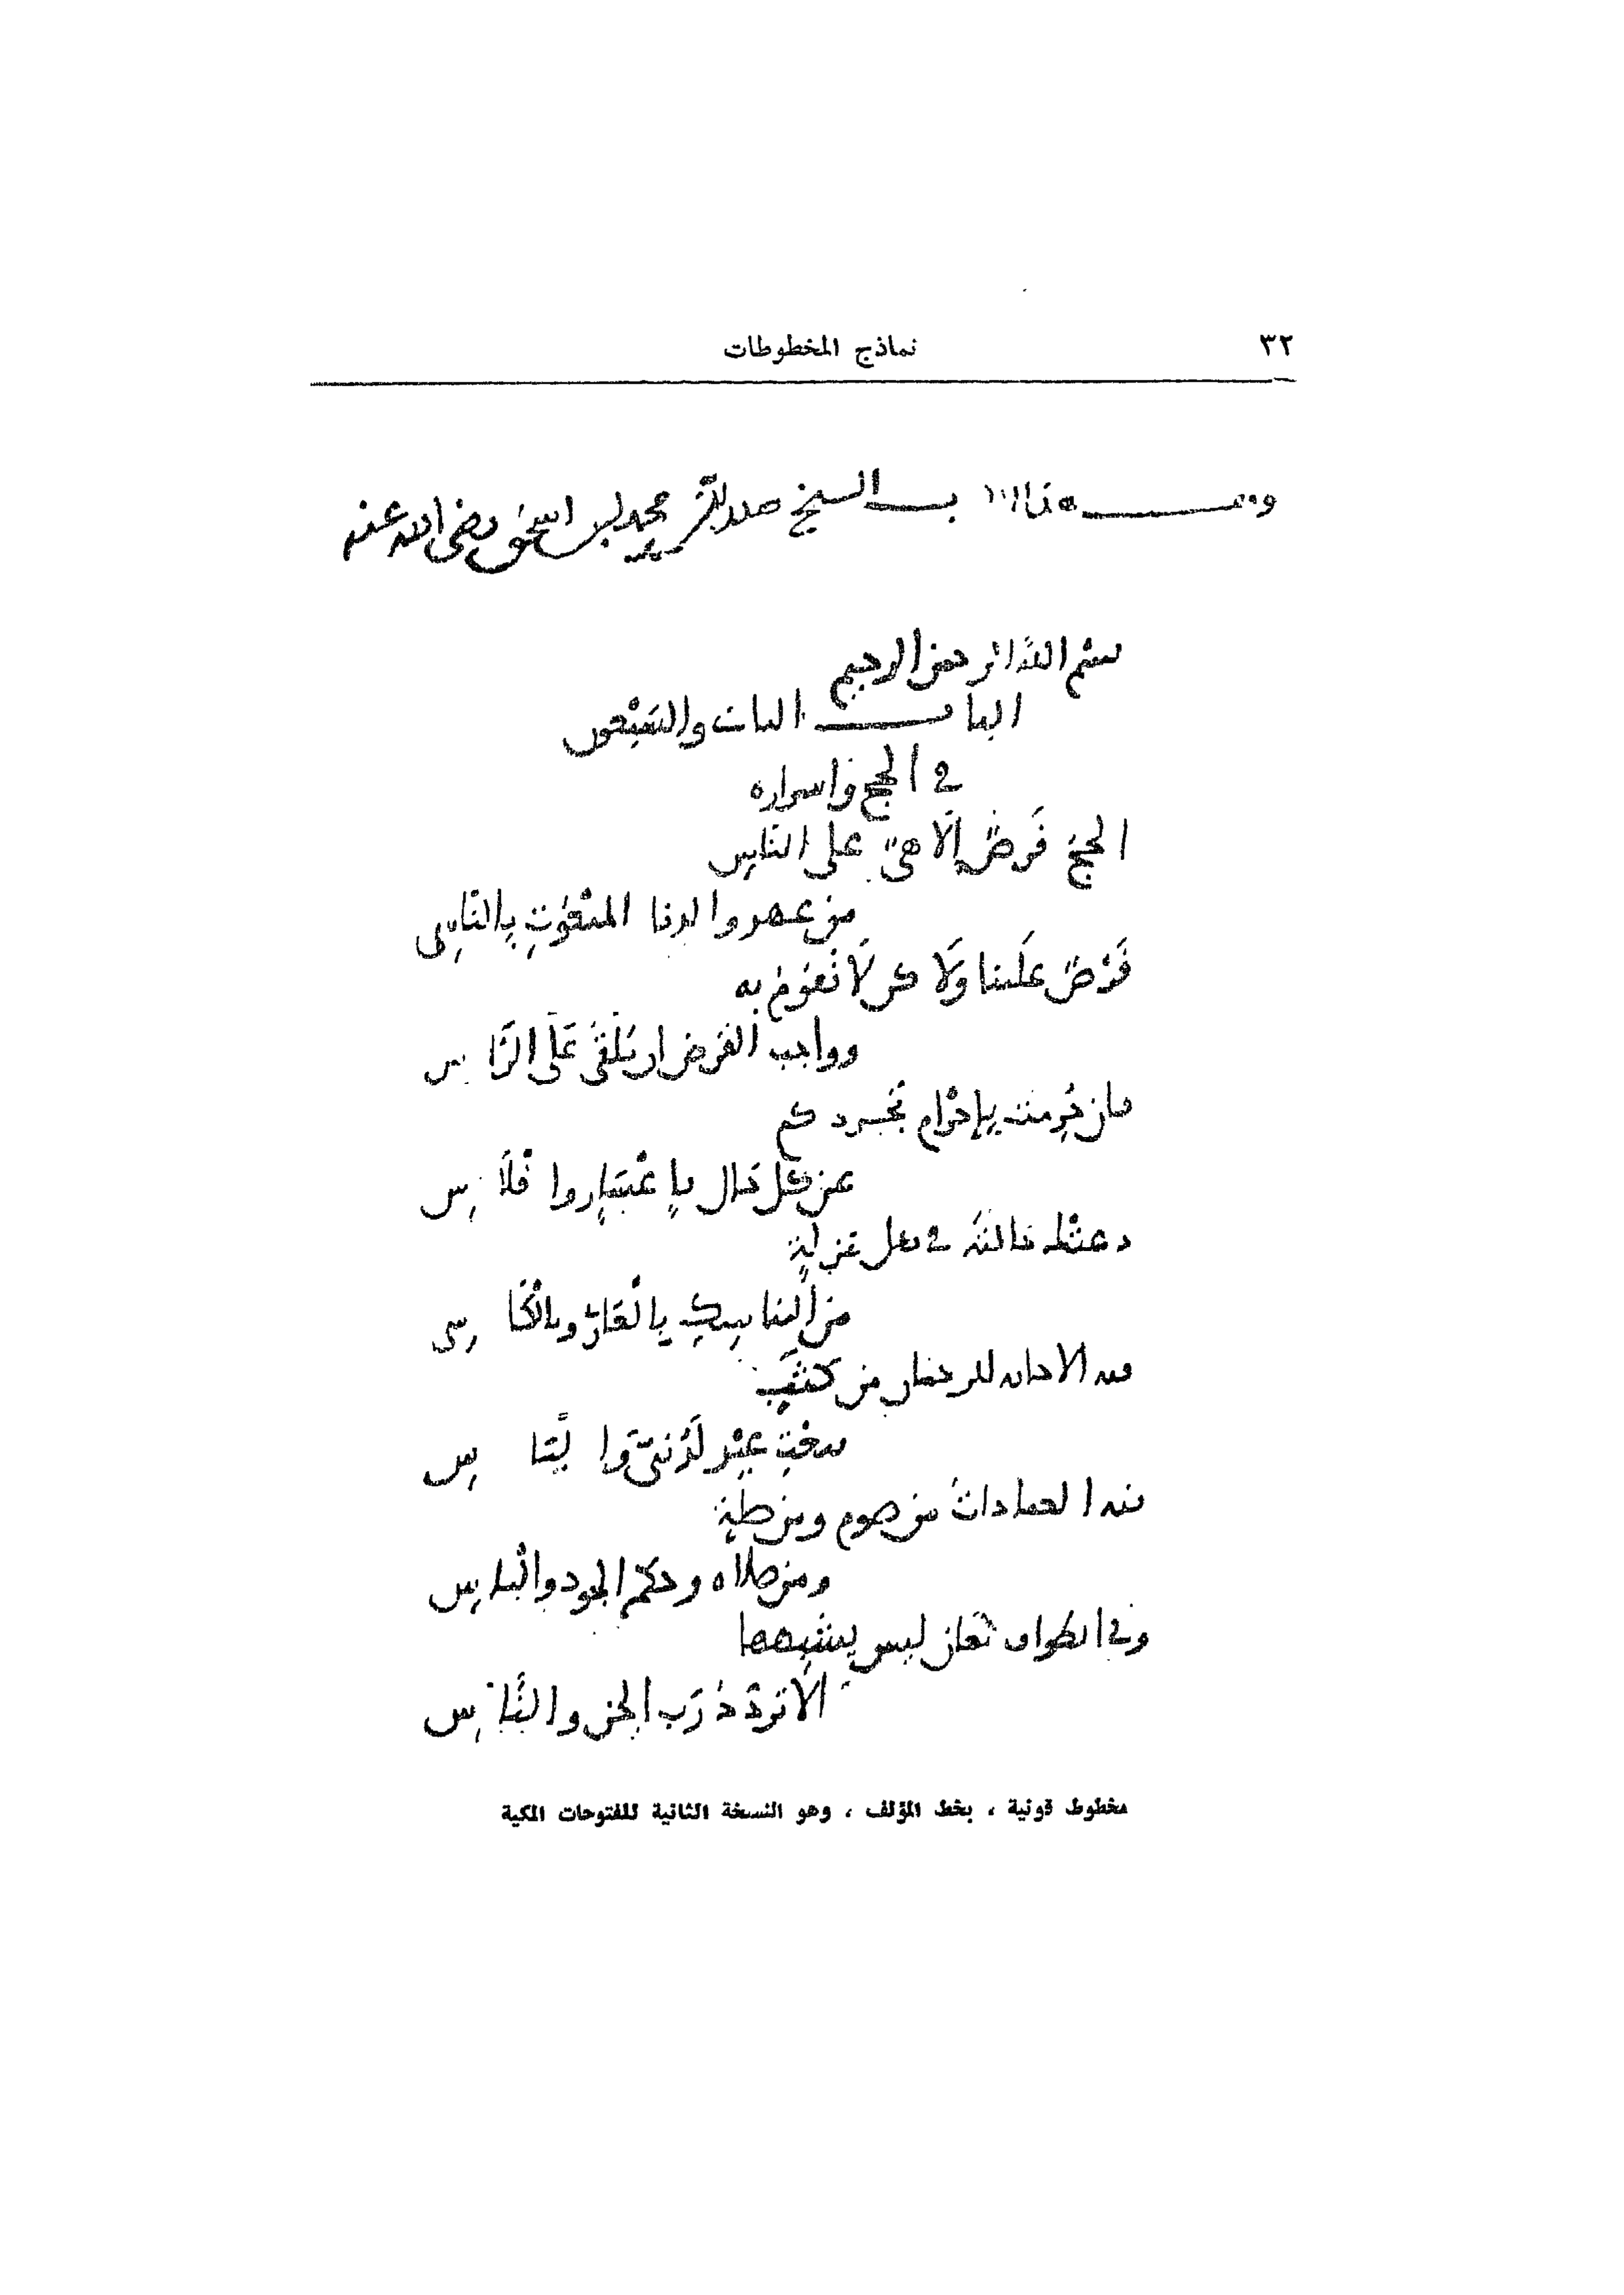 ٣٢
نماذج المخطوطات
وقف هذا الكتاب الشيخ صدر الدين محمد بن اسحق رضى الله عنه
بسم الله الرحمن الرحيم
الباب الثانى والسبعون
في الحج واسراره
الحج فرض إلاهىّ على الناس
من عهد والدنا المنعوت بالناسى
فرض علينا ولاكن لا نقوم به
وواجب الفرض ان نلقى على الراس
فان حرمت بإحرام تجردكم
عن كل حال باعسار وافلاس
دعتك حالته في كل منزلة
من المناسك بالعارى وبالكاسى
فيه الاجابه للرحمان من كثب
بنعت عبد لدنىّ والباس
فيه العبادات من صوم ومن صلة
ومن صلاه وحكم الجود والباس
وفي الطواف معان ليس يشبهها
الا تردد رب الجن والناس
مخطوط قونية ، بخط المؤلف ، وهو النسخة الثانية للفتوحات المكية